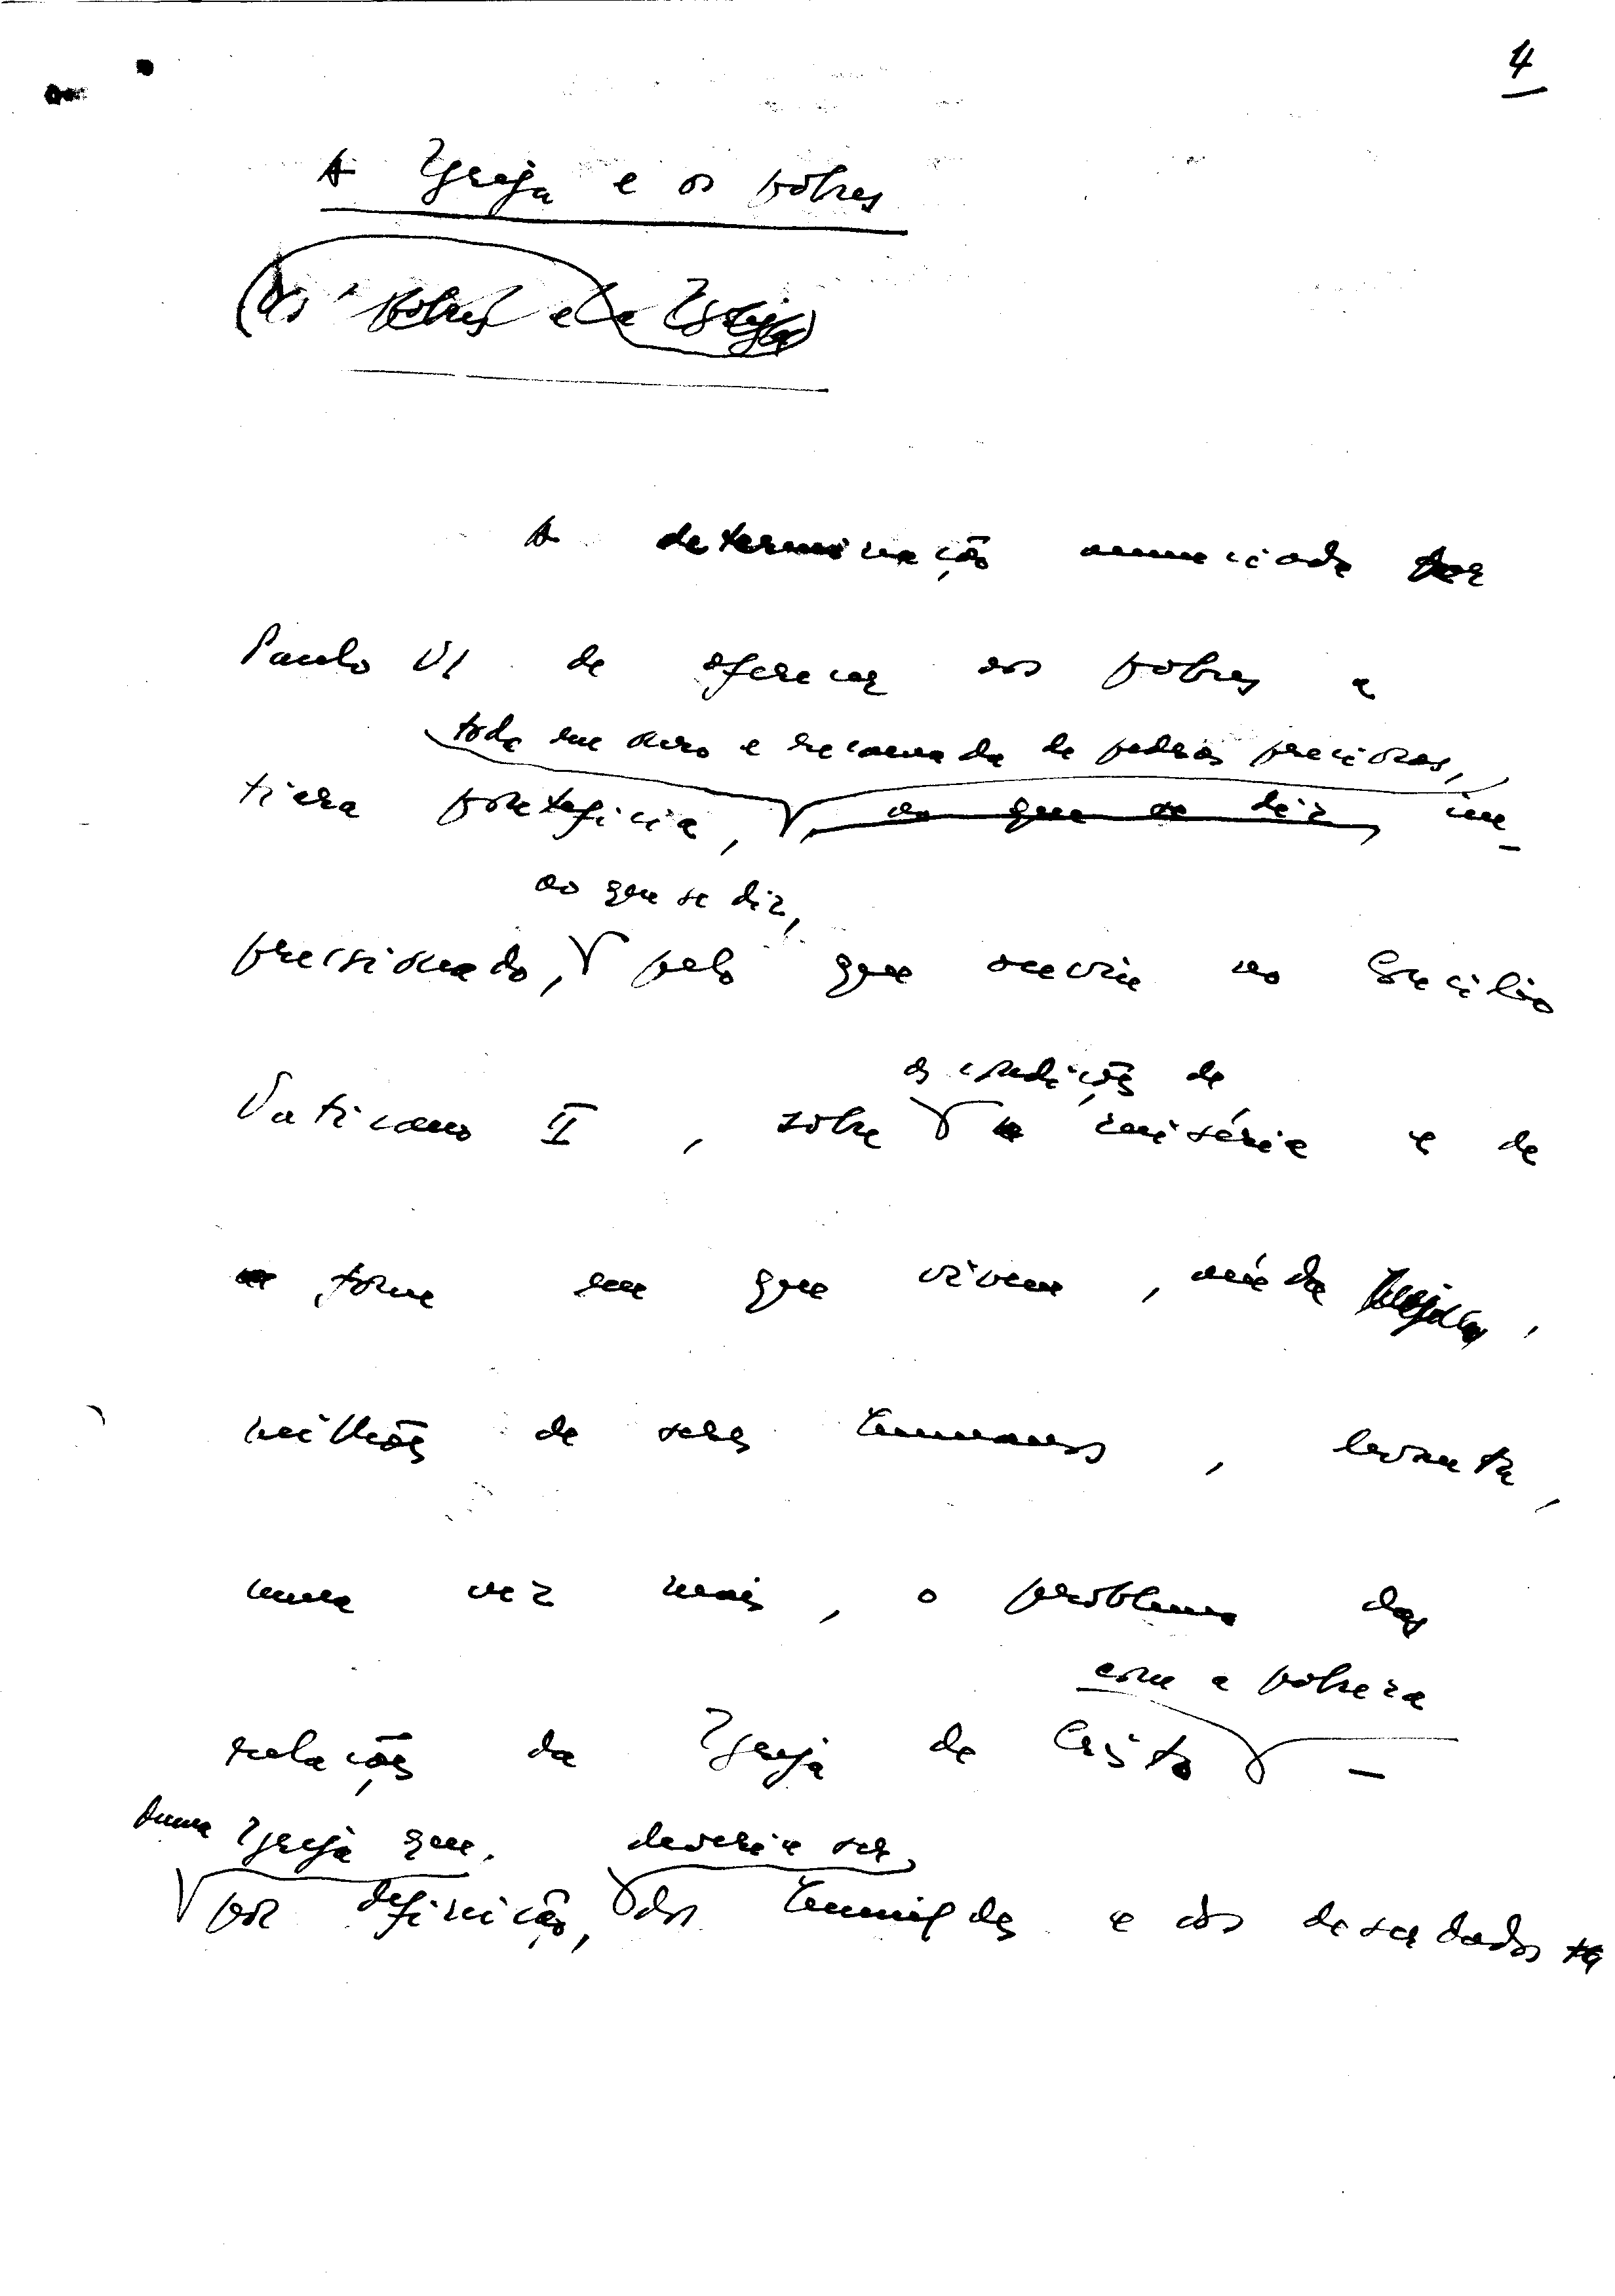 4
A Igreja e os pobres
(Os pobres e a Igreja)
A determinação anunciada por
Paulo VI de oferecer aos pobres a
toda em ouro e recamada de pedras preciosas,
tiara pontefícia, ao que se diz, im-
ao que se diz,
pressionado, pelo que ouvia no Concílio
as condições de
Vaticano II, sôbre miséria e de
fome em que vivem, ainda hoje,
milhões de sêres humanos, levanta,
uma vez mais, o problema das
com a pobreza
relações da Igreja de Cristo -
duma Igreja que, deveria ser,
por definição, dos humildes e dos deserdados